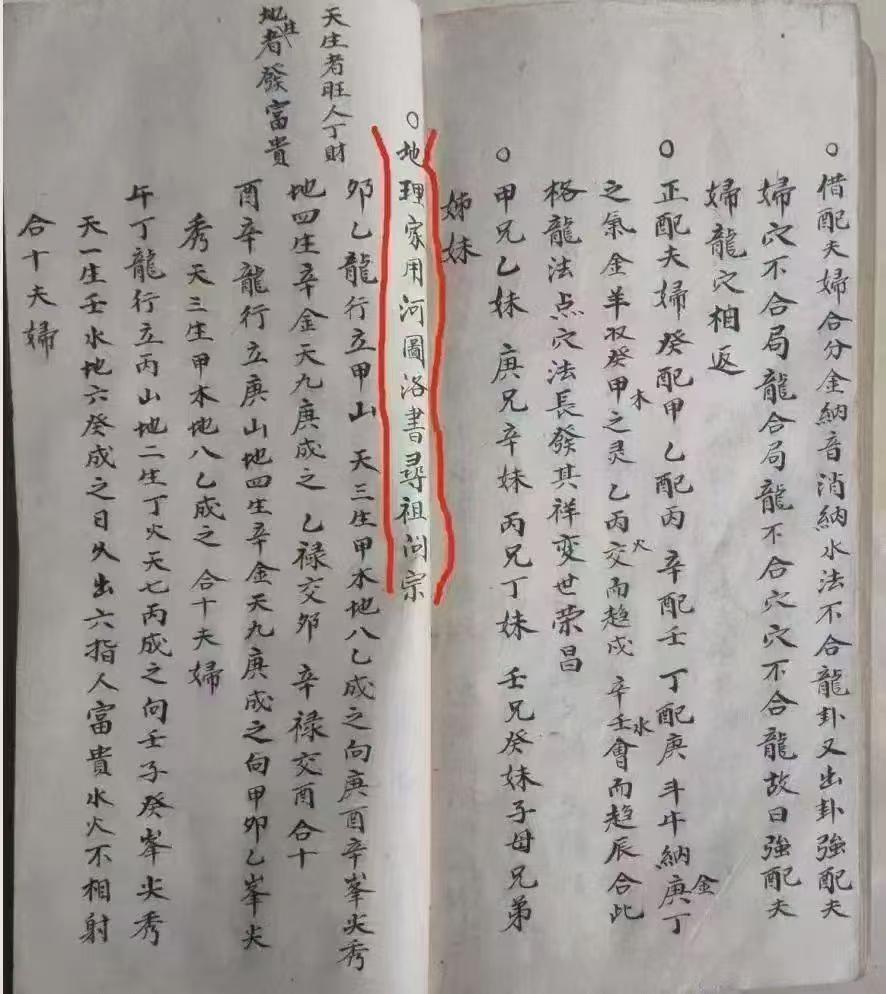 ○借配夫婦合分金納音消納水法不合龍卦又出卦強配夫
婦穴不合局龍合局龍不合穴穴不合龍故曰強配夫
婦龍穴相返
○正配夫婦癸配甲乙配丙辛配壬丁配庚斗牛納庚丁
金
之氣金羊収癸甲之灵乙丙交而趋戍辛壬會而趋辰合此
木
火
水
格龍法点穴法長發其祥变世荣昌
○甲兄乙妹庚兄辛妹丙兄丁妹壬兄癸妹子母兄弟
姊妹
○地理家用河圖洛書尋祖问宗
卯乙龍行立甲山 天三生甲木地八乙成之向庚酉辛峯尖秀
地四生辛金天九庚成之 乙禄交卯 辛禄交酉 合十
酉辛龍行立庚山地四生辛金天九庚成之向甲卯乙峯尖
秀天三生甲木地八乙成之 合十夫婦
午丁龍行立丙山地二生丁火天七丙成之向壬子癸峯尖秀
天一生壬水地六癸成之日久出六指人富貴水火不相射
合十夫婦
天生者旺人丁財
地生者發富貴